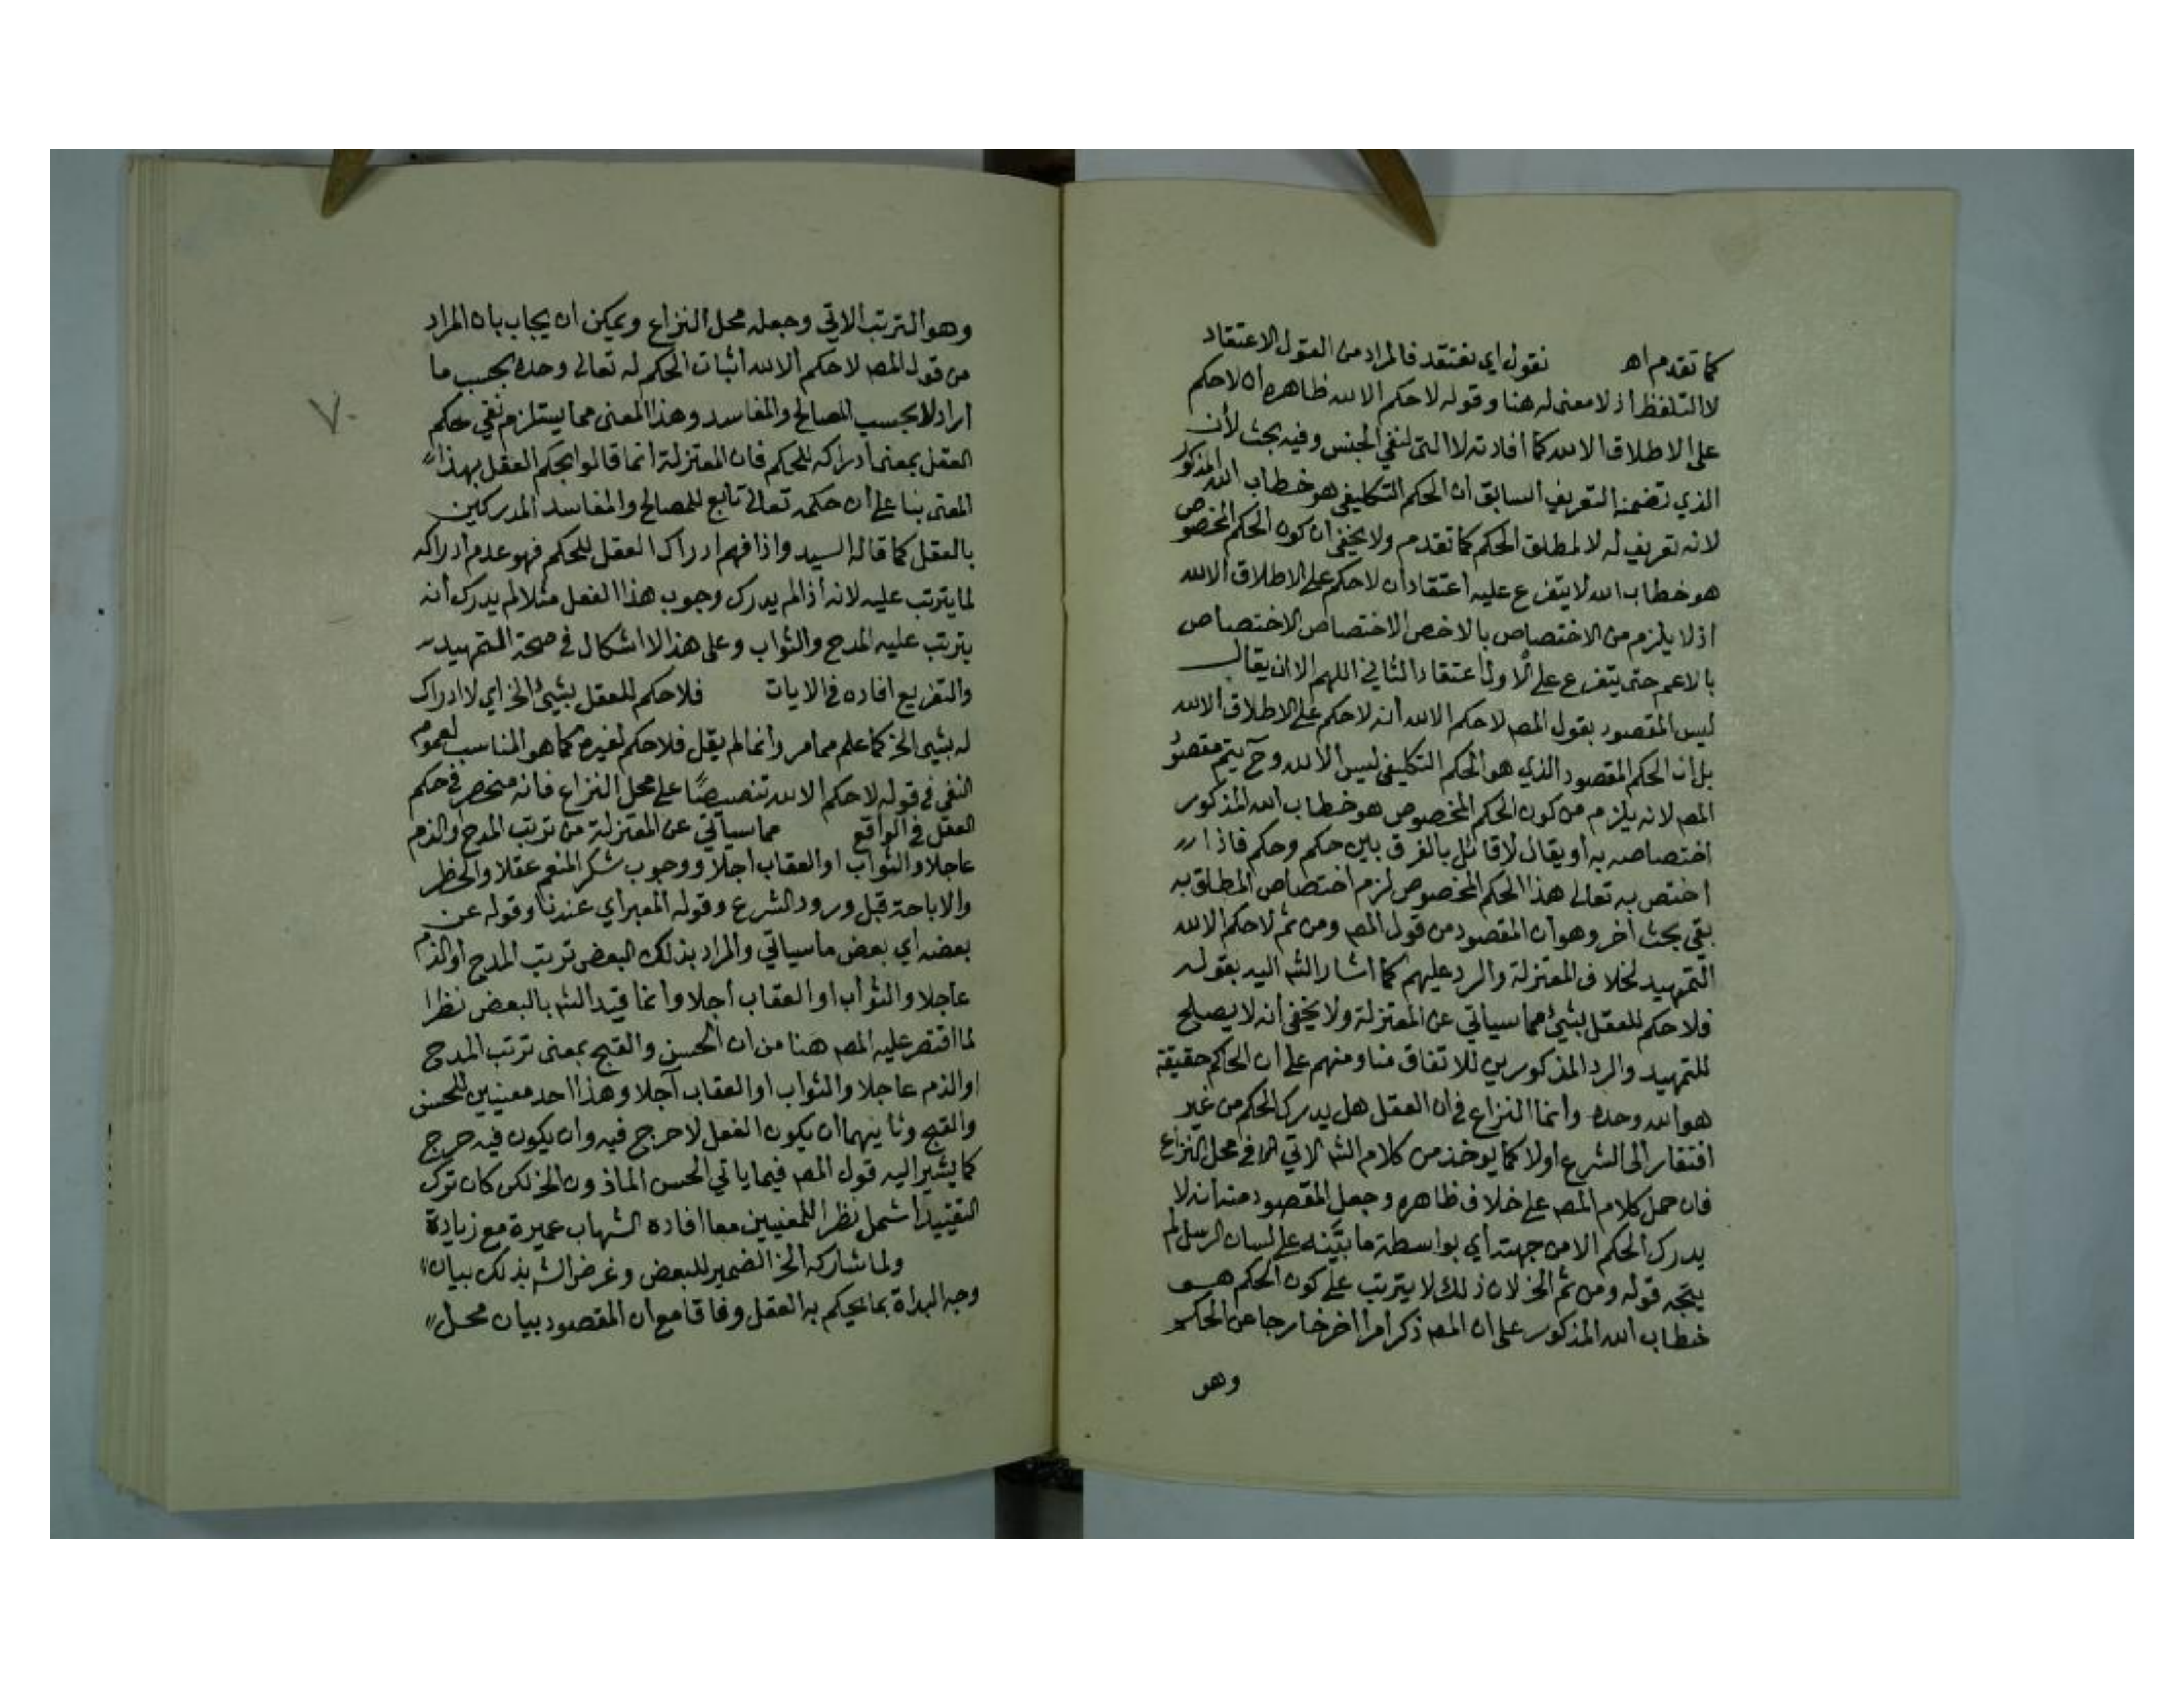 كما تقدم اه نقول اي نعتقد فالمراد من القول الاعتقاد
لا التلفظ اذ لا معنى له هنا وقوله لا حكم الا لله ظاهره ان لا حكم
على الاطلاق الا لله كما افادته لا التى لنفي الجنس وفيه بحث لأن
الذي تضمنه التعريف السابق ان الحكم التكليفي هو خطاب الله المذكور
لانه تعريف له لا لمطلق الحكم كما تقدم ولا يخفى ان كون الحكم المخصوص
هو خطاب الله لا يتفرع عليه اعتقاد ان لا حكم على الاطلاق الا لله
اذ لا يلزم من الاختصاص بالاخص الاختصاص الاختصاص
بالاعم حتى يتفرع على الاول اعتقاد الثاني اللهم الا ان يقال
ليس المقصود بقول المصـ لا حكم الا لله انه لا حكم على الاطلاق الا لله
بل ان الحكم المقصود الذي هو الحكم التكليفي ليس الا لله وح يتم مقصود
المصـ لانه يلزم من كون الحكم المخصوص هو خطاب الله المذكور
اختصاصه به او يقال لا قائل بالفرق بين حكم وحكم فاذا
اختص به تعالى هذا الحكم المخصوص لزم اختصاص المطلق به
بقي بحث اخر وهو ان المقصود من قول المصـ ومن ثم لا حكم الا لله
التمهيد لخلاف المعتزلة والرد عليهم كما اشار الشـ اليه بقوله
فلا حكم للعقل بشئ مما سياتي عن المعتزلة ولا يخفى انه لا يصلح
للتمهيد والرد المذكورين للاتفاق منا ومنهم على ان الحاكم حقيقة
هو الله وحده وانما النزاع في ان العقل هل يدرك الحكم من غير
افتقار الى الشرع اولا كما يوخذ من كلام الشـ الاتي في محل النزاع
فان حمل كلام المصـ على خلاف ظاهره وجعل المقصود منه انه لا
يدرك الحكم الا من جهته اي بواسطة ما بيّنه على لسان الرسل لم
يتجه قوله ومن ثم الخ لان ذلك لا يترتب على كون الحكم هو
خطاب الله المذكور على ان المصـ ذكر امرا اخر خارجا عن الحكم
وهو
وهو الترتب الاتي وجعله محل النزاع ويمكن ان يجاب بان المراد
من قول المصـ لا حكم الا لله اثبات الحكم له تعالى وحده بحسب ما
اراد لا بحسب المصالح والمفاسد وهذا المعنى مما يستلزم نفي حكم
العقل بمعنى ادراكه للحكم فان المعتزلة انما قالوا بحكم العقل بهذا
المعنى بنا على ان حكمه تعالى تابع للمصالح والمفاسد المدركين
بالعقل كما قاله السيد واذا فهم ادراك العقل للحكم فهو عدم ادراكه
لما يترتب عليه لانه اذا لم يدرك وجوب هذا الفعل مثلا لم يدرك انه
يترتب عليه المدح والثواب وعلى هذا لا اشكال في صحة التمهيد
والتفريع افاده في الايات فلا حكم للعقل بشيئ الخ اي لا ادراك
له بشيئ الخ كما علم مما مر وانما لم يقل فلا حكم لغيره كما هو المناسب لعموم
النفى في قوله لا حكم الا لله تنصيصًا على محل النزاع فانه منحصر في حكم
العقل في الواقع مما سياتي عن المعتزلة من ترتب المدح او الذم
عاجلا والثواب او العقاب اجلا ووجوب شكر المنعم عقلا والحظر
والاباحة قبل ورود الشرع وقوله المعبر اي عندنا وقوله عن
بعضه اي بعض ما سياتي والمراد بذلك البعض ترتب المدح او الذم
عاجلا والثواب او العقاب اجلا وانما قيد الشـ بالبعض نظرا
لما اقتصر عليه المصـ هنا من ان الحسن والقبح بمعنى ترتب المدح
او الذم عاجلا والثواب او العقاب آجلا وهذا احد معنيين للحسن
والقبح وثانيهما ان يكون الفعل لا حرج فيه وان يكون فيه حرج
كما يشير اليه قول المصـ فيما ياتي الحسن الماذون الخ لكن كان ترك
التقييد اشمل نظرا للمعنيين معا افاده الشهاب عميرة مع زيادة
ولما شاركه الخ الضمير للبعض وغرض الشـ بذلك بيان
وجه البداة بما يحكم به العقل وفاقا مع ان المقصود بيان محل